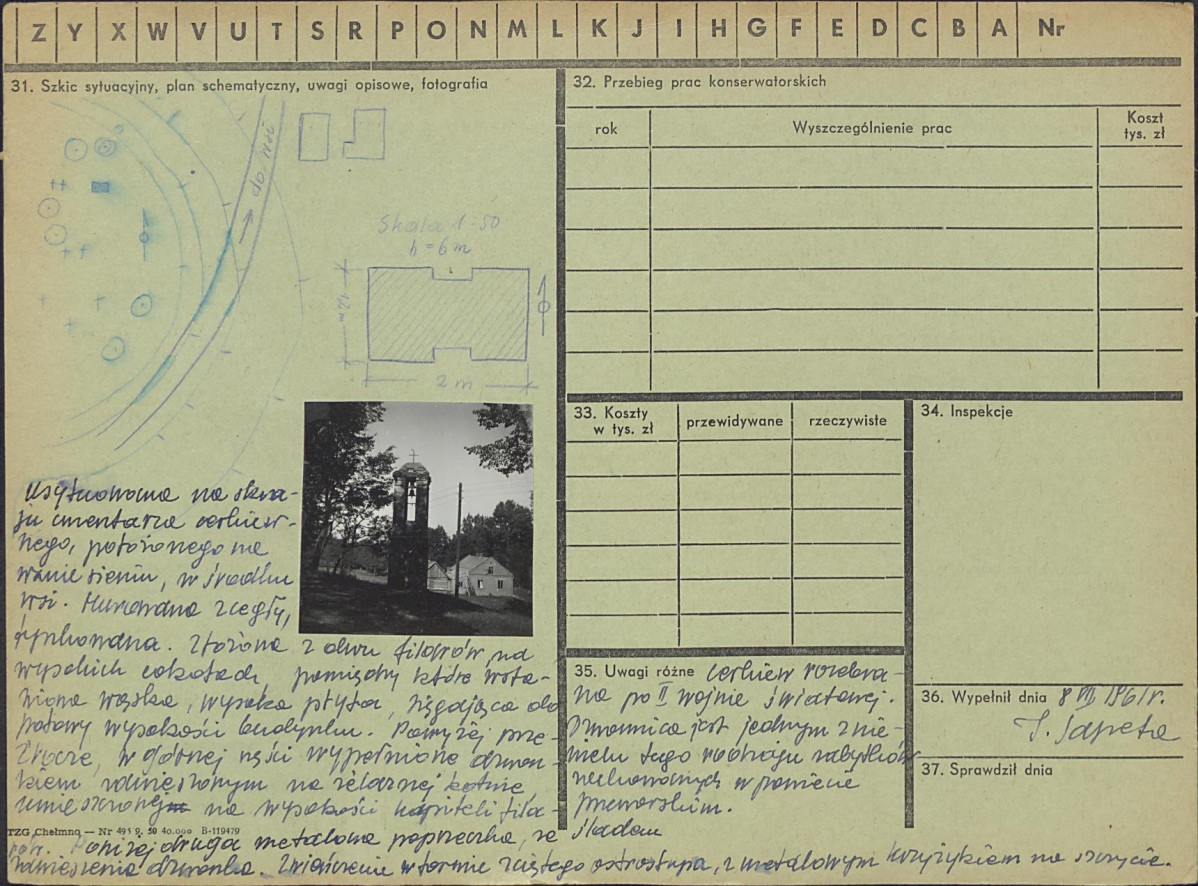 Z Y X W V U T S R P O N M L K J I H G F E D C B A Nr
31. Szkic sytuacyjny, plan schematyczny, uwagi opisowe, fotografia
do wsi
Skala 1-50
h = 6 m
2 m
Usytuowana na skra-
ju cmentarza cerkiew-
nego, położonego na
wzniesieniu, w środku
wsi. Murowana z cegły,
tynkowana. Złożona z dwu filarów na
wysokich cokołach, pomiędzy które wsta-
wiona wąska, wysoka płyta, sięgająca do
połowy wysokości budynku. Powyżej prze-
źrocze, w górnej części wypełnione dzwon-
kiem zawieszonym na żelaznej belce,
umieszczonej na wysokości kapiteli fila-
rów. Poniżej druga metalowa poprzeczka, ze śladem
zawieszenia dzwonka. Zwieńczenie w formie ściętego ostrosłupa, z metalowym krzyżykiem na szczycie.
TZG Chełmno — Nr 495 9. 50 40.000 B-119479
32. Przebieg prac konserwatorskich
rok Wyszczególnienie prac Koszt
tys. zł
33. Koszty
w tys. zł przewidywane rzeczywiste
34. Inspekcje
35. Uwagi różne Cerkiew rozebra-
na po II wojnie światowej.
Dzwonnica jest jednym z nie-
wielu tego rodzaju zabytków
zachowanych w powiecie
przeworskim.
36. Wypełnił dnia 8 VII 1961 r.
S. Sapeta
37. Sprawdził dnia